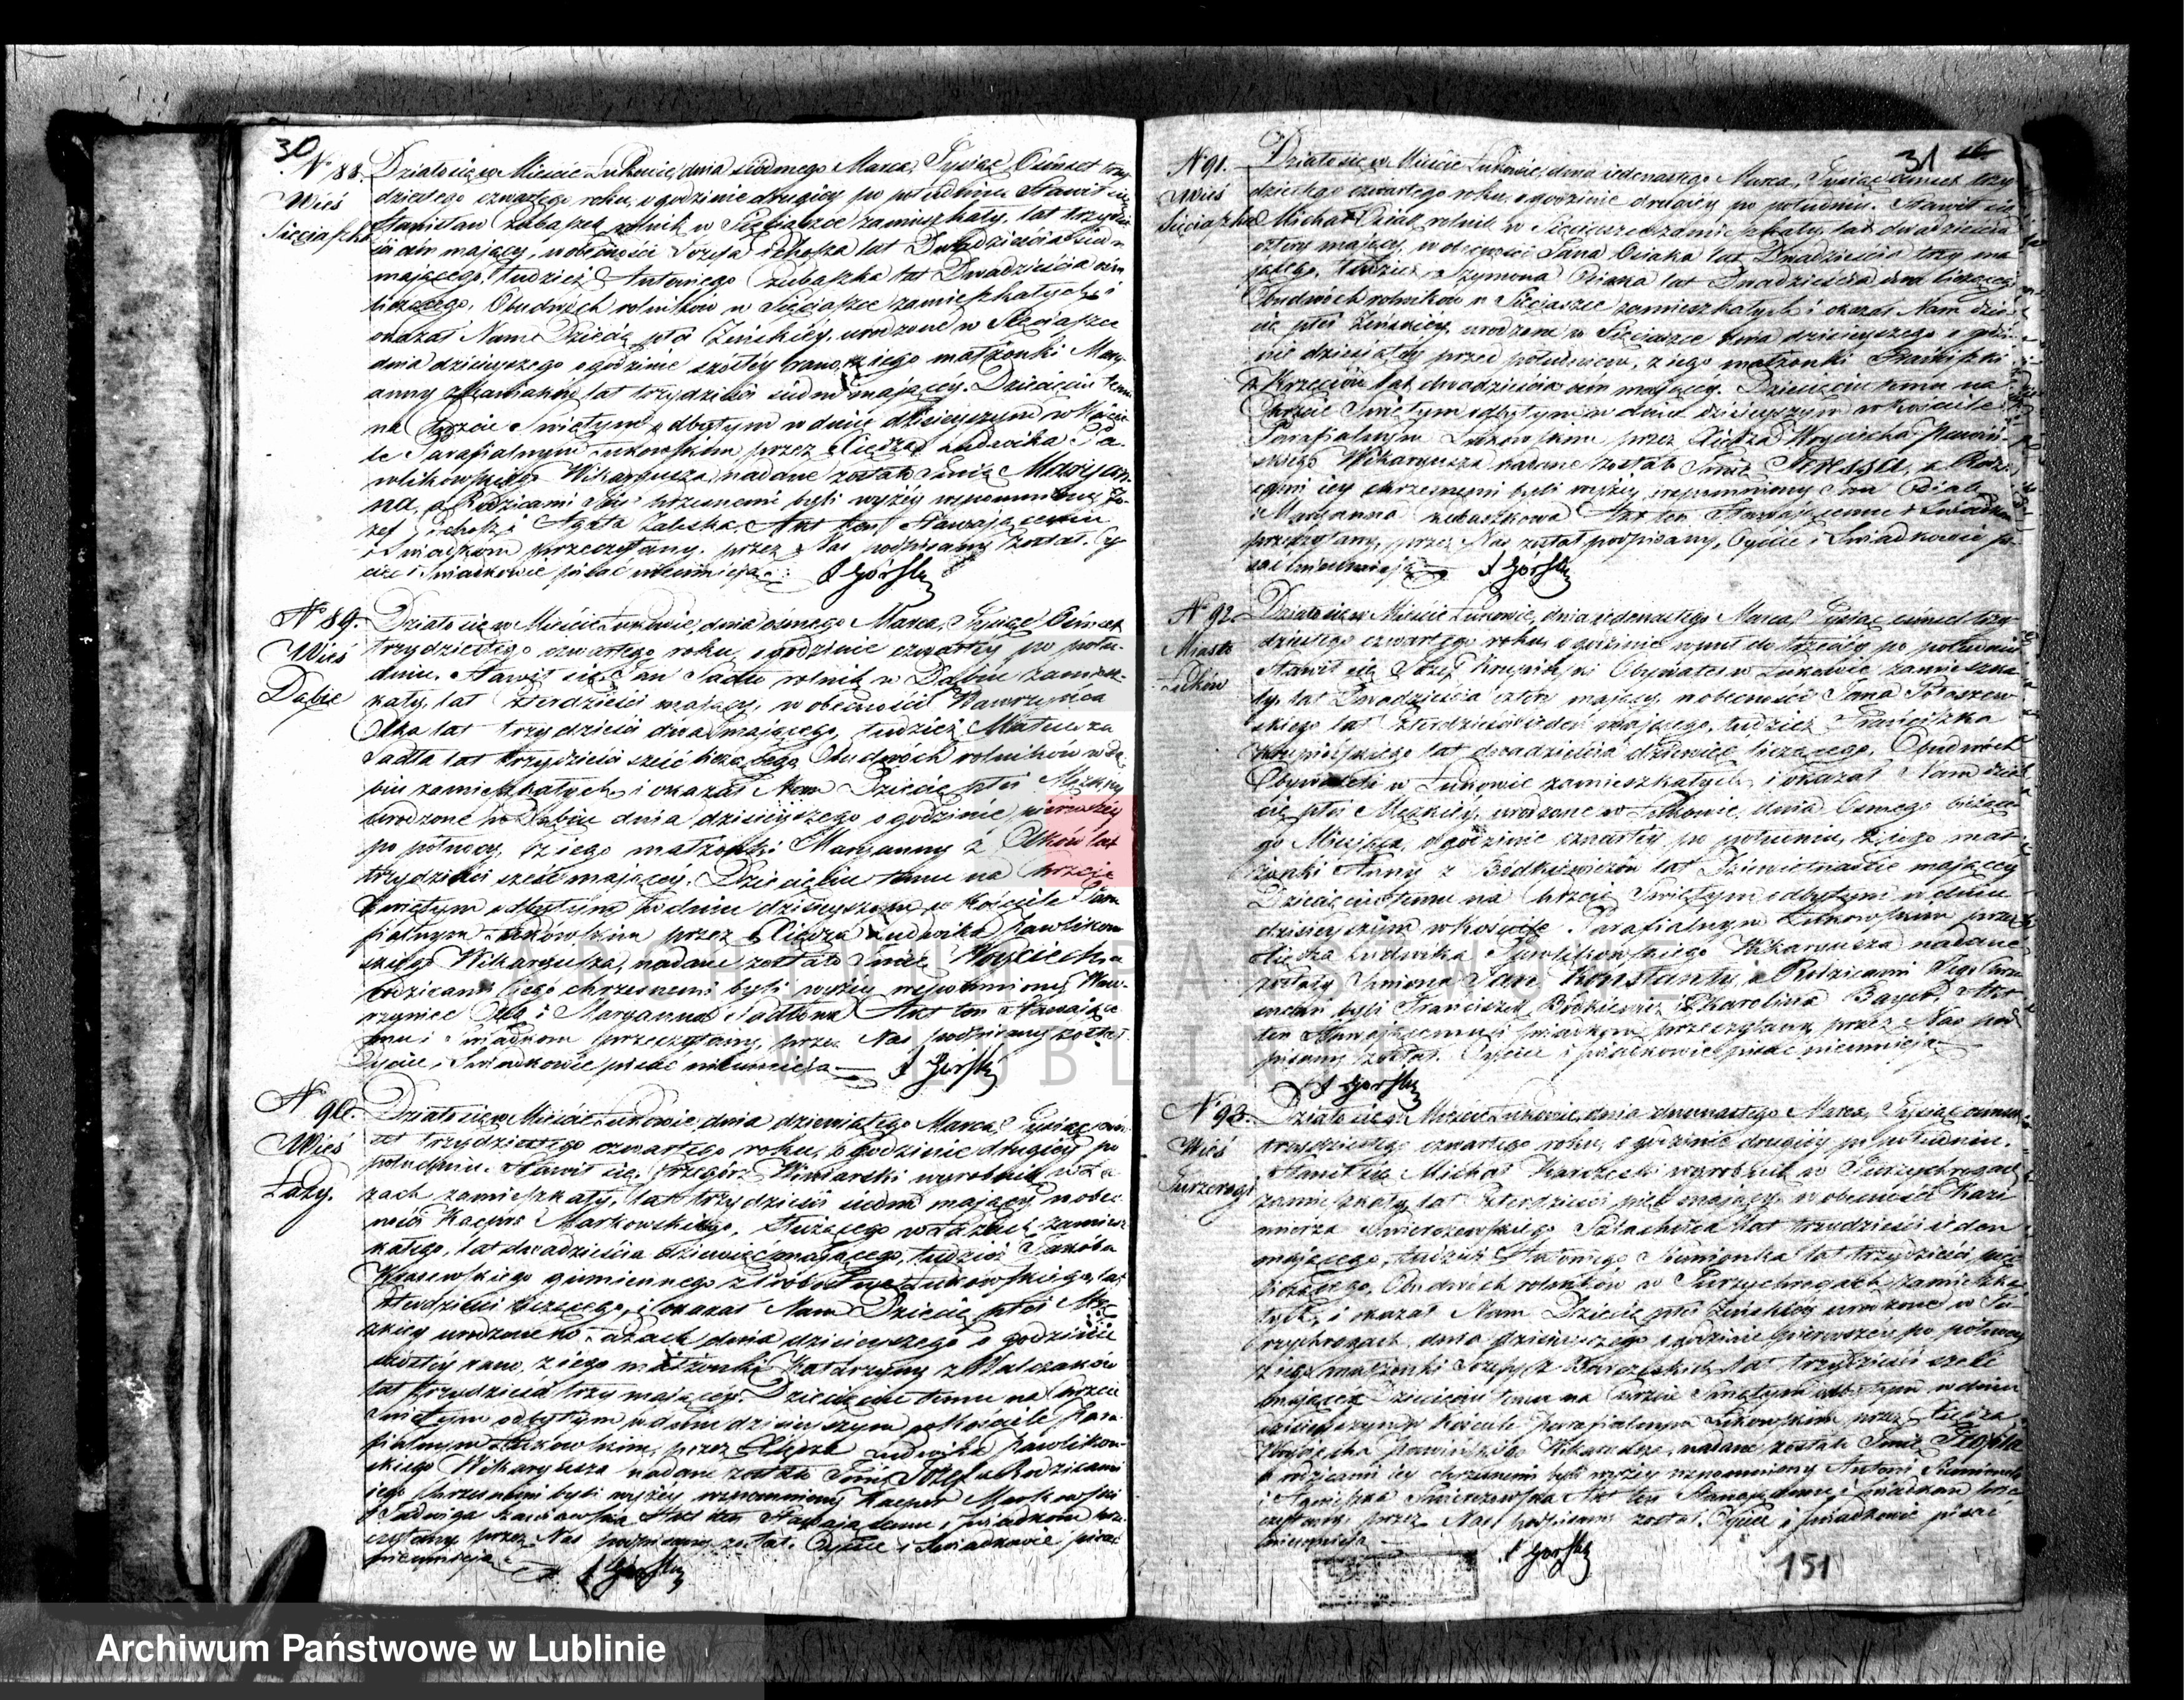 30
N 88. Działo się w Mieście Łukowie, dnia siódmego Marca, Tysiąc Ośmset trzy
Wieś dziestego czwartego roku, o godzinie drugiey po południu. Stawił się
Sięciaszka Stanisław rolnik w Sięciaszce zamieszkały, lat trzydzie
ści mający, w obecności Józefa lat Dwadzieścia
mającego, tudzież Antoniego lat Dwadzieścia ośm
liczącego, Obudwóch rolników w Sięciaszce zamieszkałych i
okazał Nam Dziecię płci Żeńskiey, urodzone w Sięciaszce
dnia dzisieyszego o godzinie szóstey rano, z iego małżonki Mary
anny z lat trzydzieści siedm maiącey. Dziecięciu temu
na Chrzcie Świętym odbytym w dniu dzisieyszym w Kościo
le Parafialnym Łukowskim przez Xiędza Ludwika Pa
wlikowskiego Wikaryusza, nadane zostało Imię Maryan
na, a Rodzicami Jéy chrzesnemi byli wyżéy wspomniony Jó
zef i Agata Zaleska. Akt ten Stawającemu
i Świadkom przeczytany, przez Nas podpisany został. Oy
ciec i Świadkowie pisać nieumieją. Górski
N 89. Działo się w Mieście Łukowie, dnia ósmego Marca, Tysiąc Ośmset
Wieś trzydziestego czwartego roku, o godzinie czwartey po połu
Dąbie dniu. Stawił się Jan Sadło rolnik w Dąbiu zamiesz
kały, lat czterdzieści mający, w obecności Wawrzyńca
Olka lat trzydzieści dwa mającego, tudzież Mateusza
Sadła lat trzydzieści sześć liczącego, Obudwóch rolników w Dą
biu zamieszkałych i okazał Nam Dziecię płci Męzkiey
urodzone w Dąbiu dnia dzisieyszego o godzinie pierwszéy
po północy, z iego małżonki Maryanny z Olków lat
trzydzieści sześć mającey. Dziecięciu temu na Chrzcie
Świętym odbytym w dniu dzisieyszym w Kościele Para
fialnym Łukowskim przez Xiędza Ludwika Pawlikow
skiego Wikaryusza, nadane zostało Imię Woyciech, a
rodzicami iego chrzesnemi byli wyżéy wspomniony Waw
rzyniec Olek i Maryanna Sadłowa. Akt ten Stawające
mu i Świadkom przeczytany, przez Nas podpisany został
Oyciec i Świadkowie pisać nieumieją Górski
N 90. Działo się w Mieście Łukowie, dnia dziewiątego Marca, Tysiąc ośm
Wieś set trzydziestego czwartego roku, o godzinie drugiey po
Łazy. południu. Stawił się Grzegórz Winiarski wyrobnik w Ła
zach zamieszkały, lat trzydzieści siedm mający, w obec
ności Kacpra Markowskiego, służącego w Łazach zamiesz
kałego, lat dwadzieścia dziewięć mającego, tudzież Jakóba
Krasewskiego gumiennego z Łukowskiego, lat
czterdzieści liczącego, i okazał Nam Dziecię płci Mę
zkiey urodzone w Łazach dnia dzisieyszego o godzinie
szóstéy rano, z iego małżonki Katarzyny z Walczaków
lat trzydzieści trzy mającey. Dziecięciu temu na Chrzcie
Świętym odbytym w dniu dzisieyszym w Kościele Para
fialnym Łukowskim, przez Xiędza Ludwika Pawlikow
skiego Wikaryusza nadane zostało Imię Józef, a Rodzicami
iego chrzesnemi byli wyżéy wspomniony Kacper Markowski
i Jadwiga Akt ten Stawającemu i świadkom prze
czytany, przez Nas podpisany został. Oyciec i Świadkowie pisać
nieumieją Górski
31
N 91. Działo się w Mieście Łukowie, dnia iedenastego Marca, Tysiąc ośmset trzy
Wieś dziestego czwartego roku, o godzinie drugiey po południu. Stawił się
Sięciaszka Michał Osiak rolnik w Sięciaszce zamieszkały, lat dwadzieścia
cztery mający, w obecności Jana Osiaka lat Dwadzieścia trzy ma
jącego, tudzież Szymona Osiaka lat Dwadzieścia liczącego
Obudwóch rolników w Sięciaszce zamieszkałych i okazał Nam dzie
cię płci Żeńskiey, urodzone w Sięciaszce dnia dzisieyszego o godzi
nie dziesiątey przed południem, z iego małżonki Franciszki
z Krzeciów lat dwadzieścia mającey. Dziecięciu temu na
Chrzcie Świętym odbytym w dniu dzisieyszym w Kościele
Parafialnym Łukowskim przez Xiędza Woyciecha
Wikaryusza nadane zostało Imię Teressa, a Rodzi
cami iey chrzesnemi byli wyżéy wspomniony Jan Osiak
i Maryanna Akt ten Stawającemu i Świadkom
przeczytany, przez Nas został podpisany, Oyciec i Świadkowie pi
sać nieumieją Górski
N 92. Działo się w Mieście Łukowie, dnia iedenastego Marca, Tysiąc ośmset trzy
Miasto dziestego czwartego roku, o godzinie wpół do trzeciey po południu
Łuków Stawił się Józef Obywatel w Łukowie zamieszka
ły, lat Dwadzieścia cztery mający, w obecności Jana
skiego lat czterdzieści ieden mającego, tudzież Franciszka
lat dwadzieścia dziewięć liczącego, Obudwóch
Obywateli w Łukowie zamieszkałych, i okazał Nam dzie
cię płci Męzkiéy, urodzone w Łukowie, dnia Osmego bieżące
go Miesiąca, o godzinie czwartéy po południu, z iego mał
żonki Anny z Bódkiewiczów lat Dziewietnaście mającey
Dziecięciu temu na Chrzcie Świętym odbytym w dniu
dzisieyszym w Kościele Parafialnym Łukowskim przez
Xiędza Ludwika Pawlikowskiego Wikaryusza nadane
zostały Imiona Jan Konstanty, a Rodzicami Jego Chrze
snemi byli Franciszek Bódkiewicz i Karolina Bayer. Akt
ten Stawającemu i świadkom przeczytany, przez Nas pod
pisany został. Oyciec i świadkowie pisać nieumieją
Górski
N 93. Działo się w Mieście Łukowie, dnia dwunastego Marca, Tysiąc ośmset
Wieś trzydziestego czwartego roku, o godzinie drugiey po południu.
Turzerogi Stawił się Michał wyrobnik w Turzychrogach
zamieszkały, lat czterdzieści pięć mający, w obecności Kazi
mierza Świerczewskiego Szlachcica lat trzydzieści ieden
mającego, tudzież Antoniego lat trzydzieści
liczącego, Obudwóch rolników w Turzychrogach zamieszka
łych, i okazał Nam Dziecię płci Żeńskiéy urodzone w Tu
rzychrogach, dnia dzisieyszego o godzinie pierwszéy po północy
z iego małżonki Józefy z lat trzydzieści sześć
mającey Dziecięciu temu na Chrzcie Świętym odbytym w dniu
dzisieyszym w Kościele Parafialnym Łukowskim przez Xiędza
Woyciecha Wikaryusza, nadane zostało Imię Józefa
a rodzicami iey chrzesnemi byli wyżéy wspomniony Antoni
i Agnieszka Świerczewska Akt ten Stawającemu i świadkom prze
czytany, przez Nas podpisany został. Oyciec i świadkowie pisać
nieumieją Górski
151
ARCHIWUM PAŃSTWOWE
W LUBLINIE
Archiwum Państwowe w Lublinie